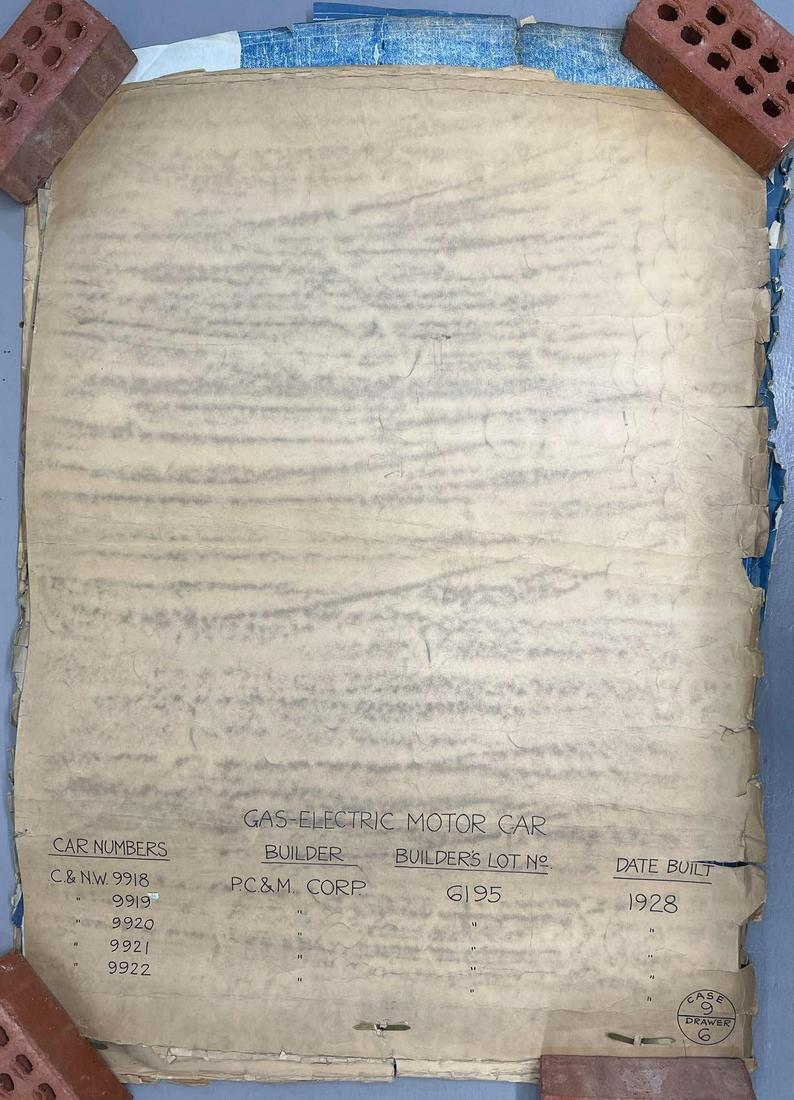 GAS-ELECTRIC MOTOR CAR
CAR NUMBERS BUILDER BUILDER'S LOT No. DATE BUILT
C.& N.W. 9918 P.C.& M. CORP. 6195 1928
" 9919 " " "
" 9920 " " "
" 9921 " " "
" 9922 " " "
CASE
9
DRAWER
6